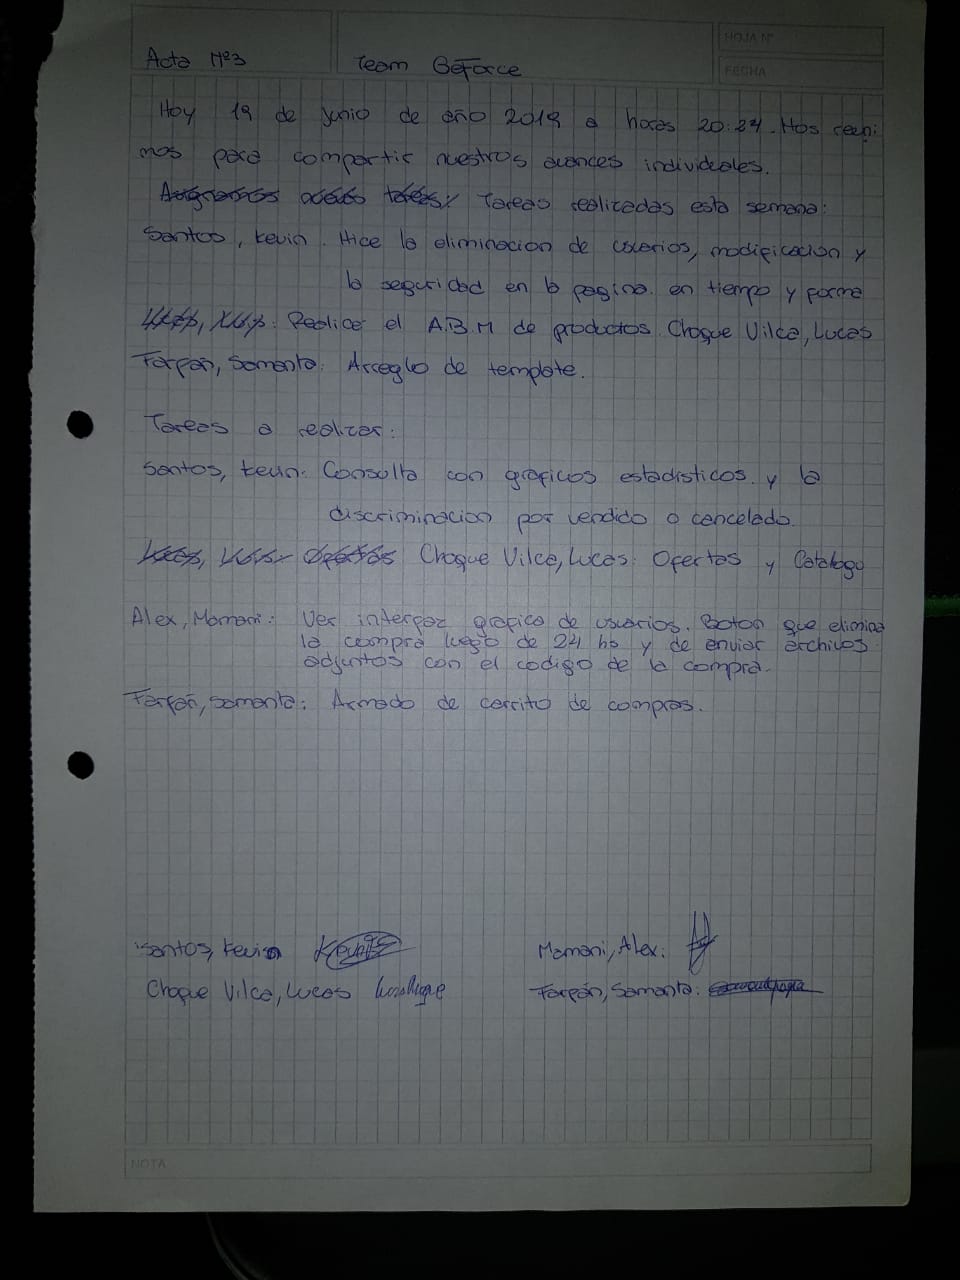 HOJA N°
Acta N°3 Team GeForce
FECHA
Hoy 19 de junio de año 2019 a horas 20:24. Nos reuni
mos para compartir nuestros avances individuales.
Tareas realizadas esta semana:
Santos, Kevin. Hice la eliminacion de usuarios, modificacion y
la seguridad en la pagina. en tiempo y forma
Realice el A.B.M de productos. Choque Vilca, Lucas
Farfán, Samanta: Arreglo de template.
Tareas a realizar:
Santos, Kevin: Consulta con gráficos estadisticos. y la
discriminacion por vendido o cancelado.
Choque Vilca, Lucas: Ofertas y Catalogo
Alex, Mamani: Ver interfaz grafica de usuarios. Boton que elimina
la compra luego de 24 hs y de enviar archivos
adjuntos con el codigo de la compra.
Farfán, Samanta: Armado de carrito de compras.
Santos, Kevin Mamani, Alex:
Choque Vilca, Lucas Farfán, Samanta:
NOTA